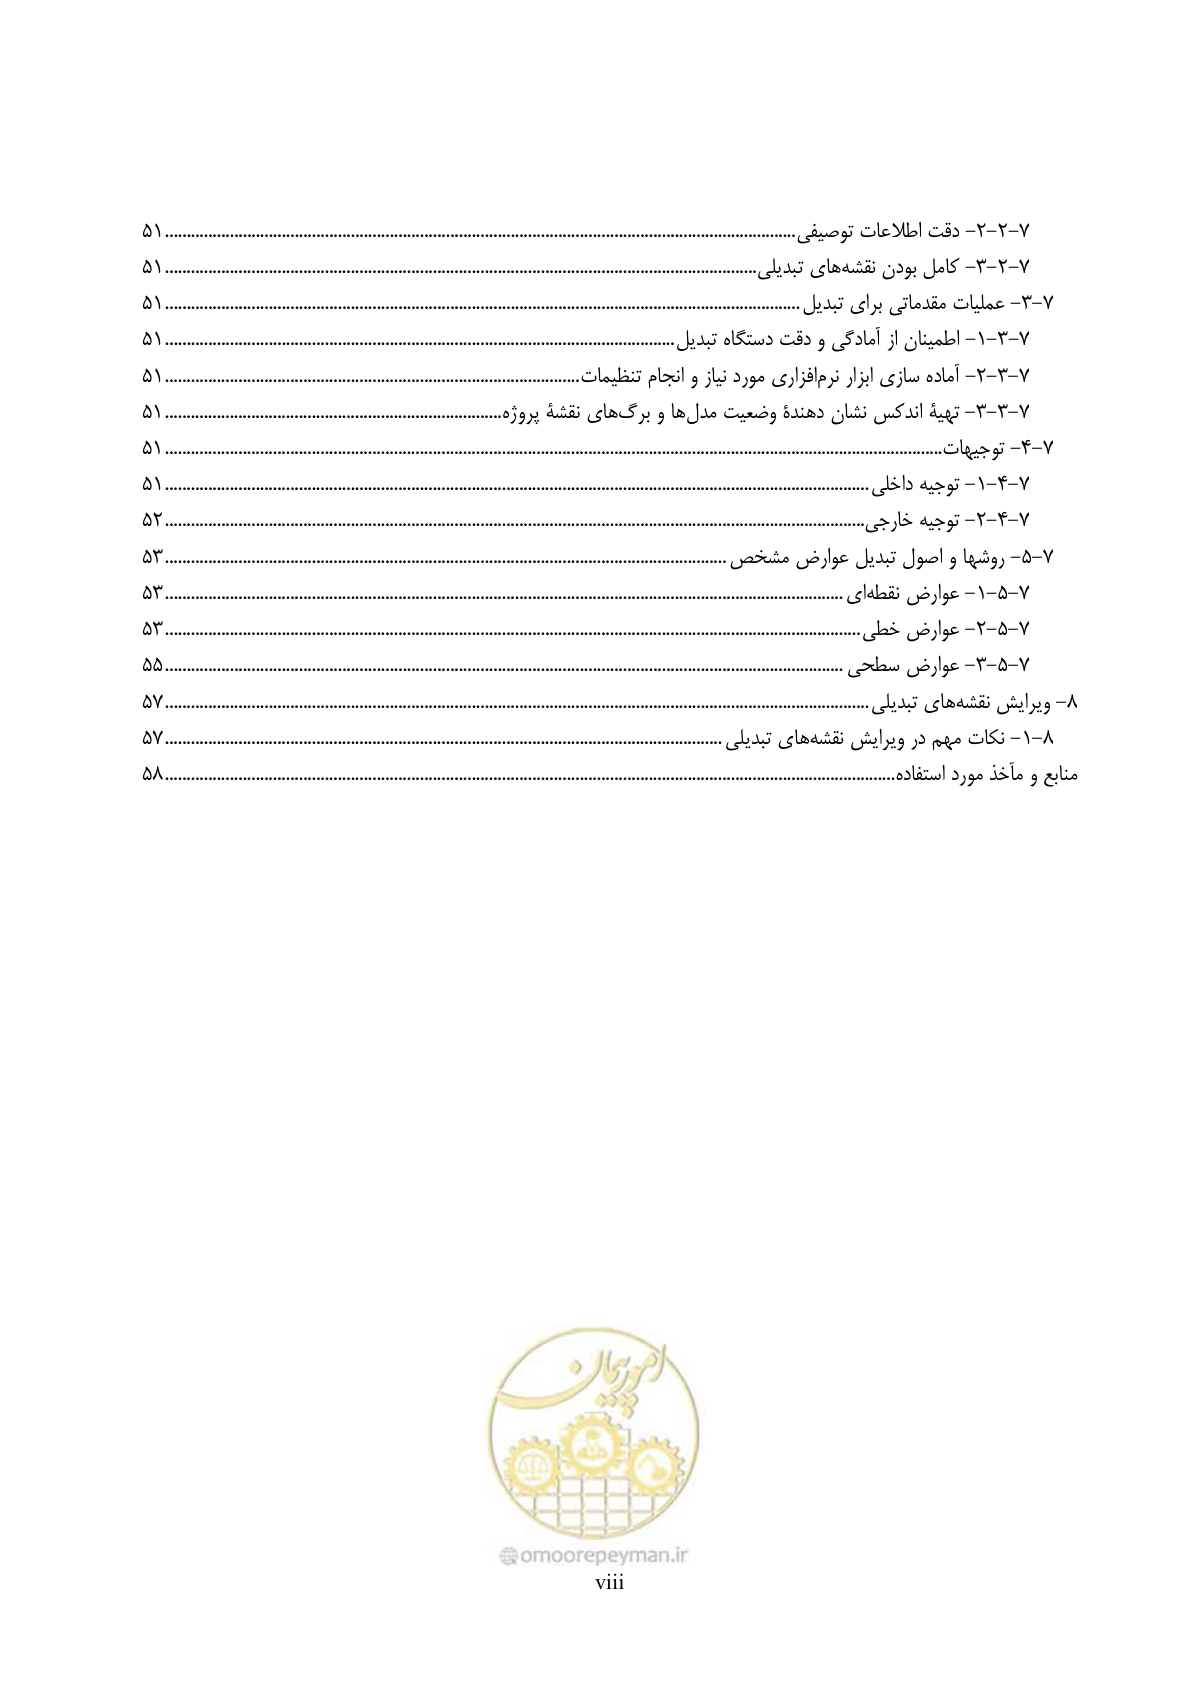 ۷-۲-۲- دقت اطلاعات توصیفی ۵۱
۷-۲-۳- کامل بودن نقشه‌های تبدیلی ۵۱
۷-۳- عملیات مقدماتی برای تبدیل ۵۱
۷-۳-۱- اطمینان از آمادگی و دقت دستگاه تبدیل ۵۱
۷-۳-۲- آماده سازی ابزار نرم‌افزاری مورد نیاز و انجام تنظیمات ۵۱
۷-۳-۳- تهیۀ اندکس نشان دهندۀ وضعیت مدل‌ها و برگ‌های نقشۀ پروژه ۵۱
۷-۴- توجیهات ۵۱
۷-۴-۱- توجیه داخلی ۵۱
۷-۴-۲- توجیه خارجی ۵۲
۷-۵- روشها و اصول تبدیل عوارض مشخص ۵۳
۷-۵-۱- عوارض نقطه‌ای ۵۳
۷-۵-۲- عوارض خطی ۵۳
۷-۵-۳- عوارض سطحی ۵۵
۸- ویرایش نقشه‌های تبدیلی ۵۷
۸-۱- نکات مهم در ویرایش نقشه‌های تبدیلی ۵۷
منابع و مآخذ مورد استفاده ۵۸
امور پیمان
@omoorepeyman.ir
viii